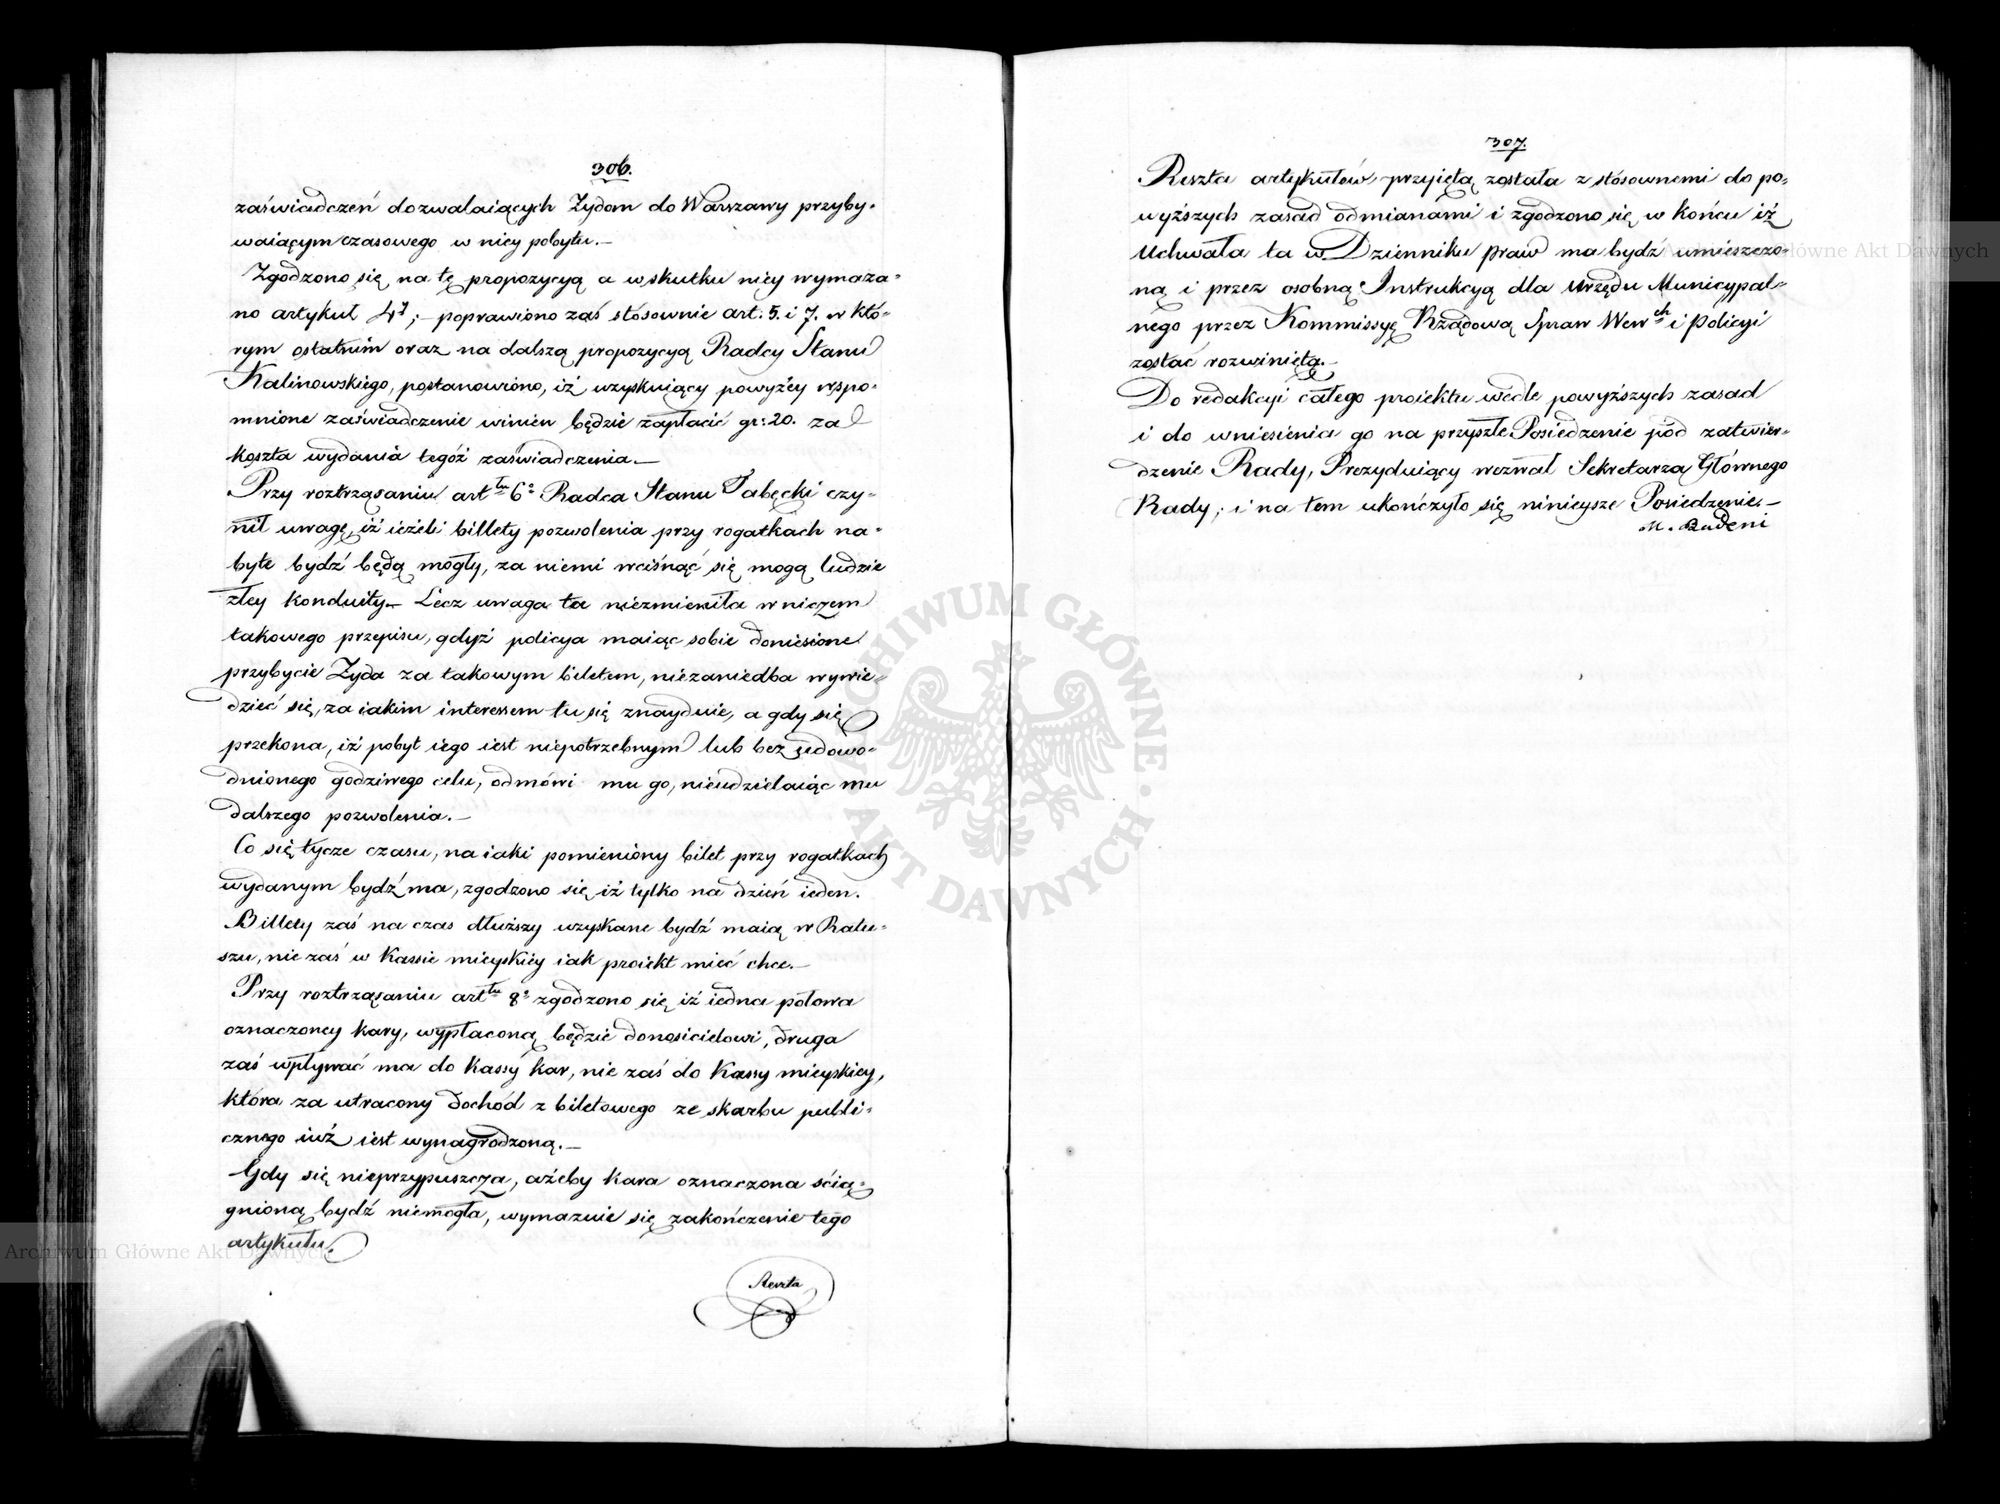 306.
zaświadczeń dozwalaiących Żydom do Warszawy przyby-
waiącym czasowego w niey pobytu.—
Zgodzono się na tę propozycyą a w skutku niey wymaza-
no artykuł 4ty;— poprawiono zaś stósownie art: 5. i 7. w któ-
rym ostatnim oraz na dalszą propozycyą Radcy Stanu
Kalinowskiego, postanowiono, iż uzyskuiący powyżey wspo-
mnione zaświadczenie winien będzie zapłacić gr: 20. za
koszta wydania tegóż zaświadczenia.—
Przy roztrząsaniu arttu 6o Radca Stanu Tabęcki czy-
nił uwagę, iż ieżeli billety pozwolenia przy rogatkach na-
byte bydź będą mogły, za niemi wciśnąć się mogą ludzie
złey konduity.— Lecz uwaga ta niezmieniła w niczem
takowego przepisu, gdyż policya maiąc sobie doniesione
przybycie Żyda za takowym biletem, niezaniedba wywie-
dzieć się, za iakim interessem tu się znayduie, a gdy się
przekona, iż pobyt iego iest niepotrzebnym lub bez udowo-
dnionego godziwego celu, odmówi mu go, nieudzielaiąc mu
dalszego pozwolenia.—
Co się tycze czasu, na iaki pomieniony bilet przy rogatkach
wydanym bydź ma, zgodzono się iż tylko na dzień ieden.
Billety zaś na czas dłuższy uzyskane bydź maią w Ratu-
szu, nie zaś w Kassie mieyskiey iak proiekt mieć chce.—
Przy roztrząsaniu arttu 8o zgodzono się iż iedna połowa
oznaczoney kary, wypłaconą będzie donosicielowi, druga
zaś wpływać ma do Kassy kar, nie zaś do Kassy mieyskiey,
która za utracony dochód z biletowego ze skarbu publi-
cznego iuż iest wynagrodzoną.—
Gdy się nieprzypuszcza, ażeby kara oznaczona ścią-
gnioną bydź niemogła, wymazuie się zakończenie tego
artykułu.
Reszta
307.
Reszta artykułów przyiętą została z stósownemi do po-
wyższych zasad odmianami i zgodzono się w końcu iż
Uchwała ta w Dzienniku praw ma bydź umieszczo-
ną i przez osobną Instrukcyą dla Urzędu Municypal-
nego przez Kommissyę Rządową Spraw Wewch i Policyi
zostać rozwiniętą.—
Do redakcyi całego proiektu wedle powyższych zasad
i do wniesienia go na przyszłe Posiedzenie pód zatwier-
dzenie Rady, Prezyduiący wezwał Sekretarza Głównego
Rady; i na tem ukończyło się ninieysze Posiedzenie.—
M. Badeni
ARCHIWUM GŁÓWNE AKT DAWNYCH
Archiwum Główne Akt Dawnych
Archiwum Główne Akt Dawnych